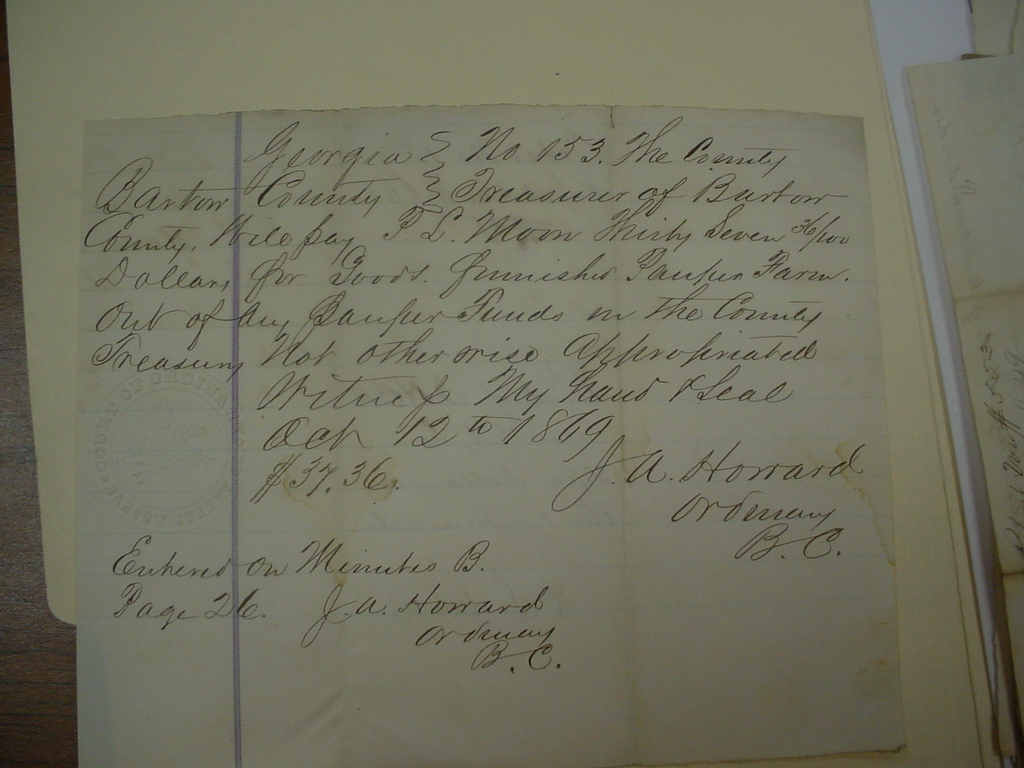 Georgia } No 153. The County
Bartow County } Treasurer of Bartow
County. Will pay T. L. Moon Thirty Seven 36/100
Dollars for Goods. furnished Pauper Farm.
Out of any Pauper Funds in the County
Treasury Not otherwise Appropriated
Witness My hand & Seal
Oct 12th 1869
$37.36.
J. A. Howard
Ordinary
B. C.
Entered on Minutes B.
Page 26. J. A. Howard
Ordinary
B. C.
COURT OF ORDINARY